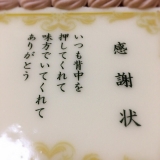 感謝状
いつも背中を
押してくれて
味方でいてくれて
ありがとう